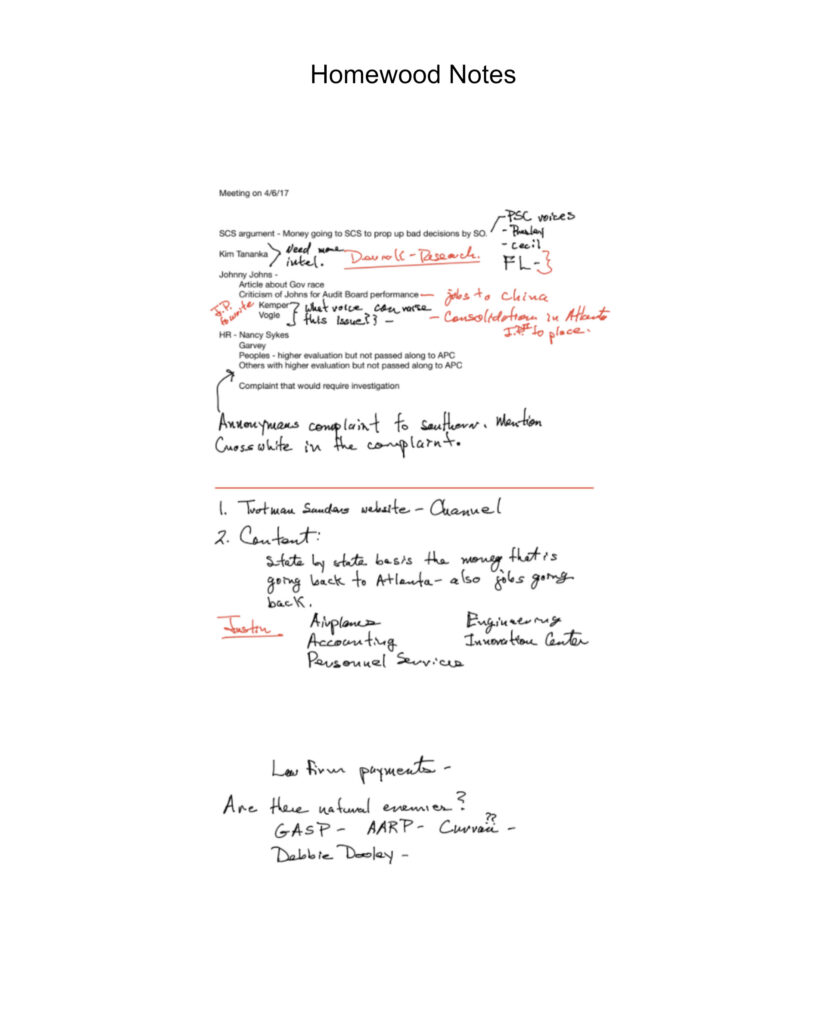 Homewood Notes
Meeting on 4/6/17
PSC voices
SCS argument - Money going to SCS to prop up bad decisions by SO.
- Cecil
Kim Tananka
Need more
intel.
- Research.
FL -
Johnny Johns -
Article about Gov race
Criticism of Johns for Audit Board performance
jobs to China
J.P.
to write
Kemper
Vogle
what voice can raise
this issue?? -
- Consolidation in Atlanta
to place.
HR - Nancy Sykes
Garvey
Peoples - higher evaluation but not passed along to APC
Others with higher evaluation but not passed along to APC
Complaint that would require investigation
Annonymous complaint to Southern. Mention
Crosswhite in the complaint.
1. Trotman Sanders website - Channel
2. Content:
State by state basis the money that is
going back to Atlanta - also jobs going
back.
Justin
Airplanes
Engineering
Accounting
Innovation Center
Personnel Services
Law firm payments -
Are there natural enemies?
GASP - AARP - ?? -
Debbie Dooley -